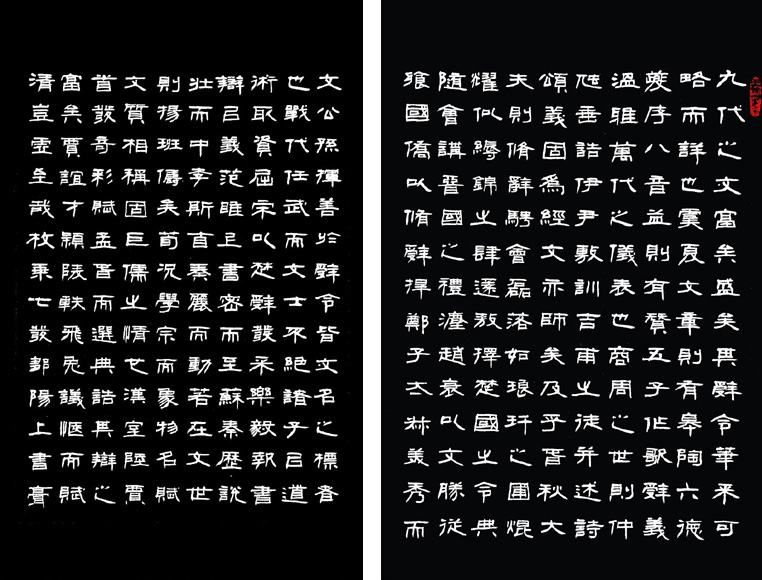 九代之文富矣盛矣其辭令華采可
略而詳也虞夏文章則有皋陶六德
夔序八音益則有贊五子作歌辭義
溫雅萬代之儀表也商周之世則仲
虺垂誥伊尹敷訓吉甫之徒并述詩
頌義固為經文亦師矣及乎春秋大
夫則脩辭騁會磊落如琅玕之圃焜
耀似縟錦之肆薳敖擇楚國之令典
隨會講晉國之禮灋趙衰以文勝從
饗國僑以脩辭捍鄭子太叔美秀而
文公孫揮善於辭令皆文名之標者
也戰代任武而文士不絕諸子以道
術取資屈宋以楚辭發采樂毅報書
辯以義范雎上書密而至蘇秦歷說
壯而中李斯自奏麗而動若在文世
則揚班儔矣荀況學宗而象物名賦
文質相稱固巨儒之情也漢室陸賈
首發奇彩賦孟春而選典誥其辯之
富矣賈誼才穎陵軼飛兔議愜而賦
清豈虛至哉枚乘七發鄒陽上書膏